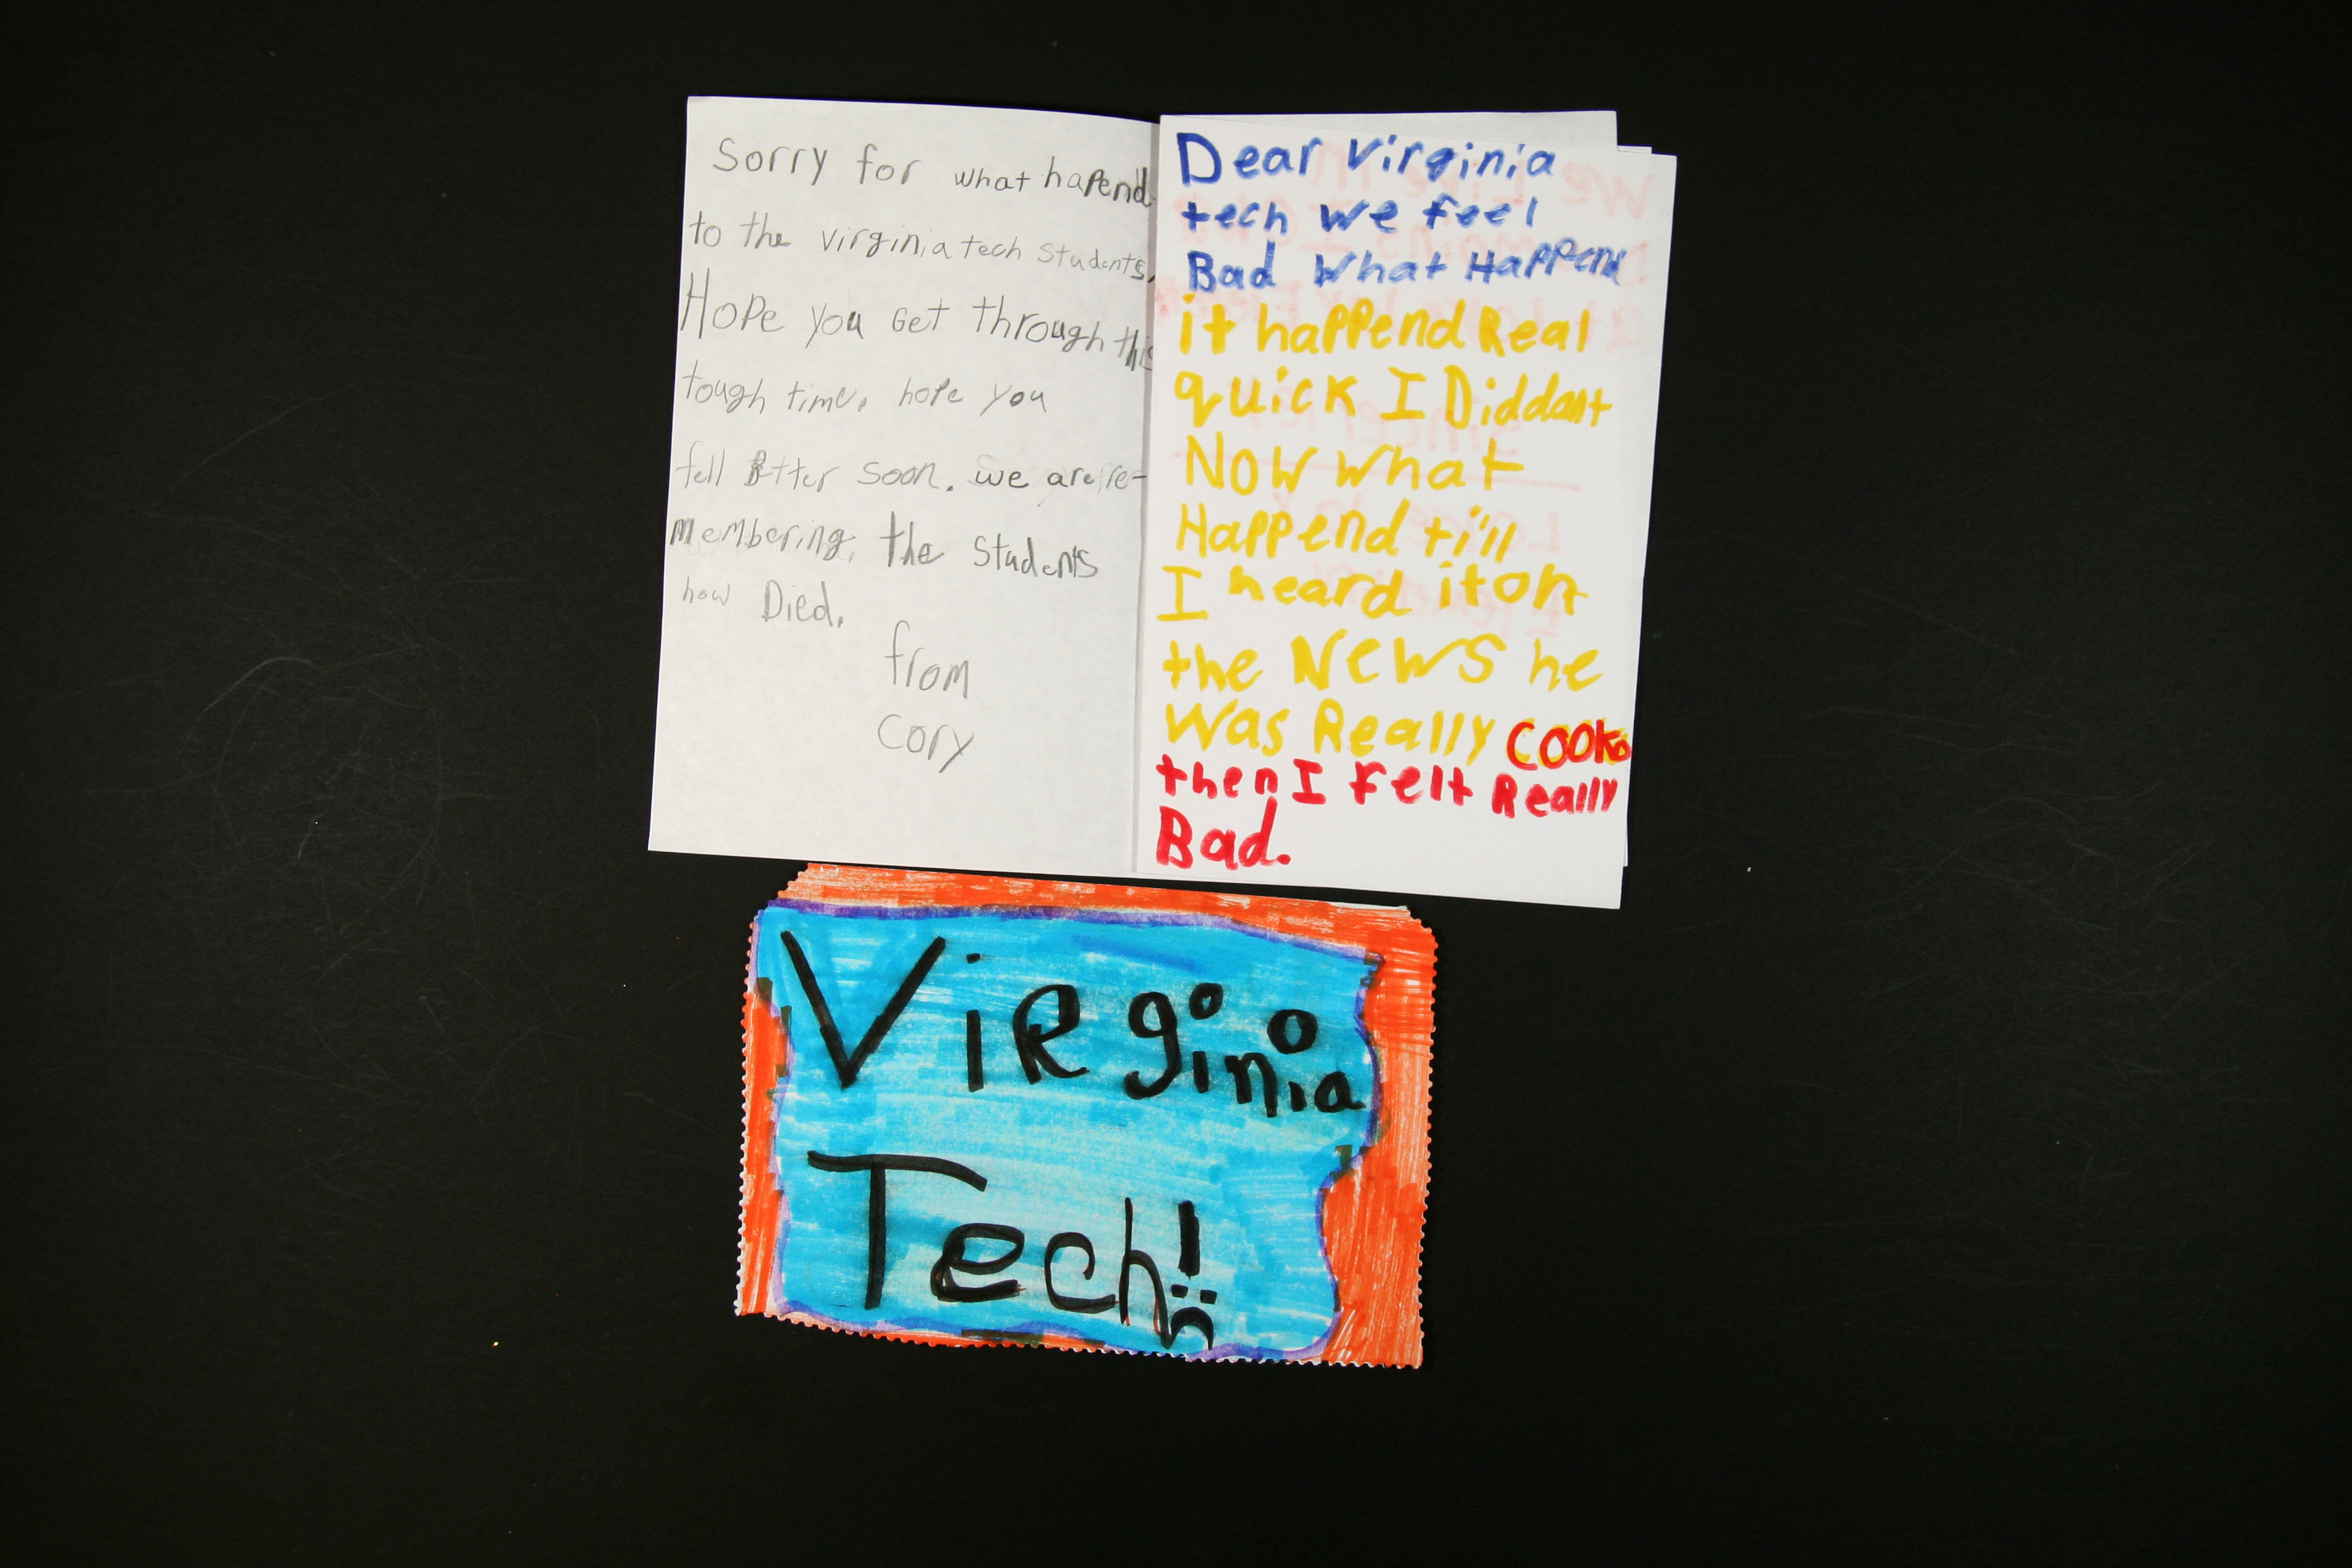 Sorry for what hapend
to the virginia tech students,
Hope you Get through this
tough time. hope you
fell Better soon. we are re-
membering, the students
how Died.
from
Cory
Dear Virginia
tech we feel
Bad What Happend
it happend Real
quick I Diddant
Now what
Happend till
I heard it on
the News he
was Really
then I felt Really
Bad.
Virginia
Tech!